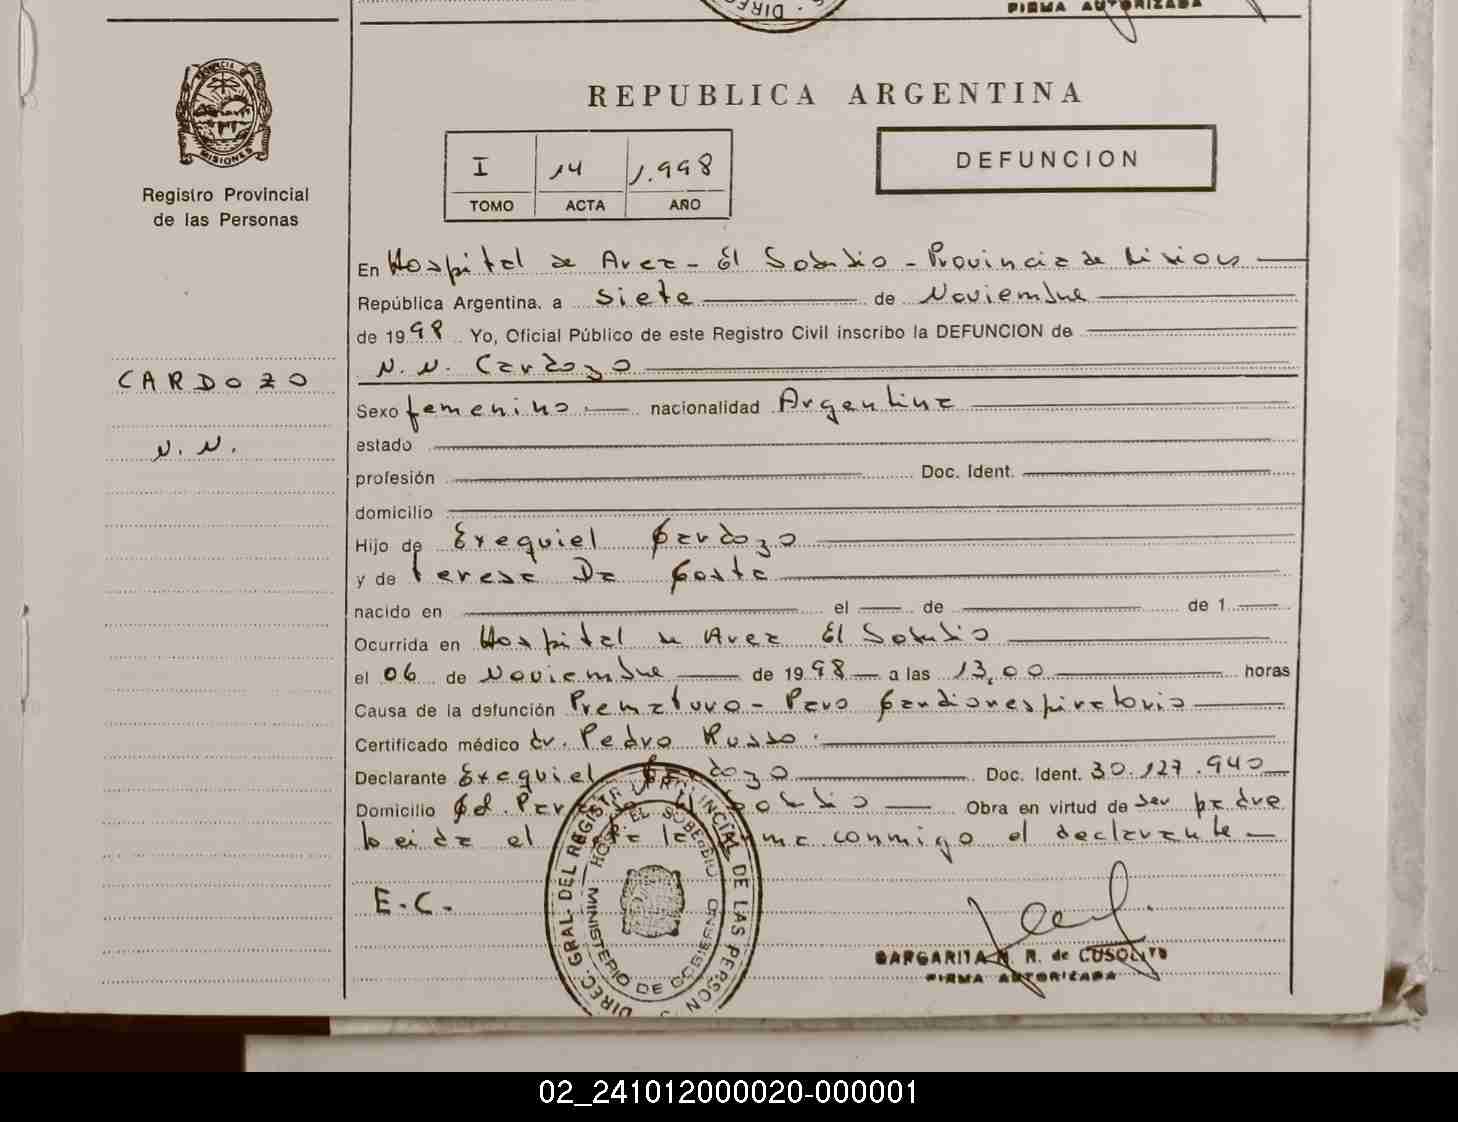 FIRMA AUTORIZADA
PROVINCIA
MISIONES
Registro Provincial
de las Personas
REPUBLICA ARGENTINA
I 14 1.998
TOMO ACTA AÑO
DEFUNCION
En Hospital de Area - El Soberbio - Provincia de Misiones
República Argentina. a siete de Noviembre
de 1998 Yo, Oficial Público de este Registro Civil inscribo la DEFUNCION de
N.N. Cardozo
CARDOZO
N.N.
Sexo femenino nacionalidad Argentina
estado
profesión Doc. Ident.
domicilio
Hijo de Exequiel Cardozo
y de Teresa Da Costa
nacido en el de de 1
Ocurrida en Hospital de Area El Soberbio
el 06 de Noviembre de 1998 a las 13,00 horas
Causa de la defunción Prematuro - Paro Cardiorespiratorio
Certificado médico dr. Pedro Russo.
Declarante Exequiel Cardozo Doc. Ident. 30.127.940
Domicilio Cd. El Soberbio Obra en virtud de ser padre
Leida el acta la firma conmigo el declarante
E.C.
DIREC. GRAL. DEL REGISTRO PROVINCIAL DE LAS PERSON
HOSP. EL SOBERBIO
MINISTERIO DE GOBIERNO
MARGARITA R. de CUSOLITO
FIRMA AUTORIZADA
02_241012000020-000001